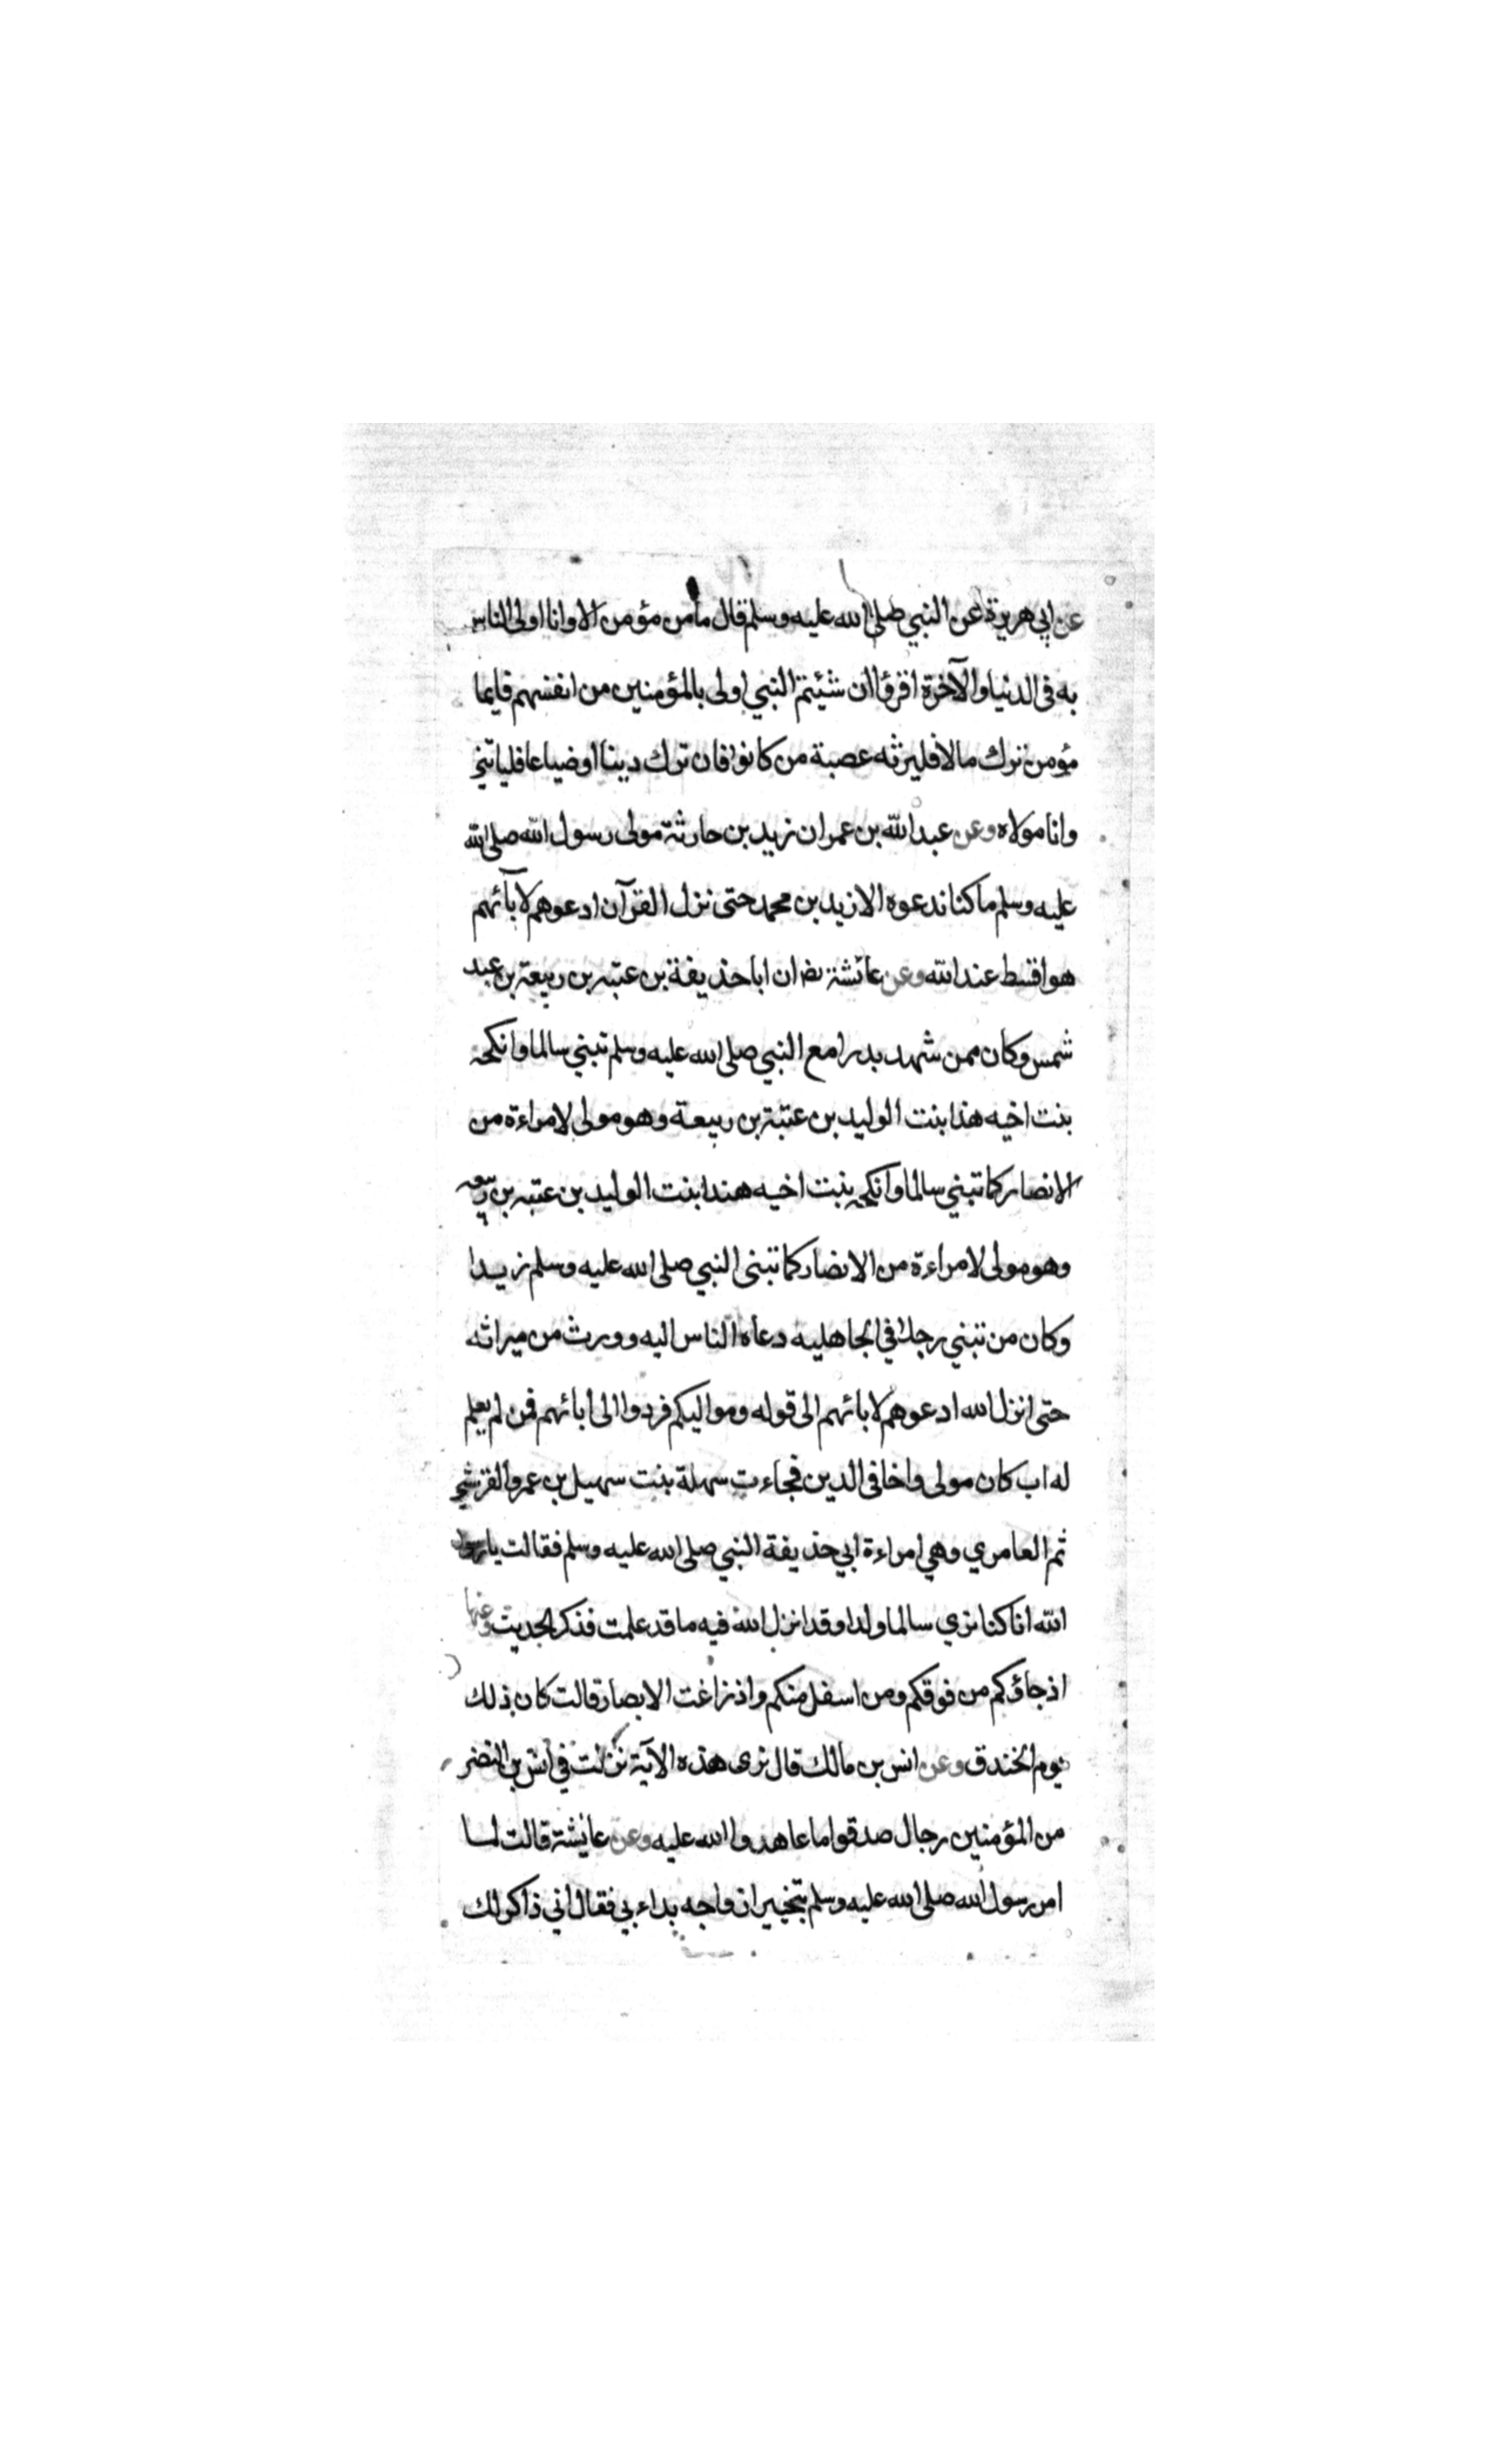 عن ابي هريرة عن النبي صلى الله عليه وسلم قال ما من مؤمن الا وانا اولى الناس
به فى الدنيا والآخرة اقرؤا ان شئيتم النبي اولى بالمؤمنين من انفسهم فايما
مؤمن ترك مالا فليرثه عصبة من كانوا فان ترك دينا او ضياعا فلياتني
وانا مولاه وعن عبد الله بن عمر ان زيد بن حارثة مولى رسول الله صلى الله
عليه وسلم ما كنا ندعوه الا زيد بن محمد حتى نزل القرآن ادعوهم لآبآئهم
هو اقسط عند الله وعن عائشة رض ان ابا حذيفة بن عتبه بن ربيعة بن عبد
شمس وكان ممن شهد بدرا مع النبي صلى الله عليه وسلم تبني سالما وانكحه
بنت اخيه هذا بنت الوليد بن عتبة بن ربيعة وهو مولى لامراءة من
الانصار كما تبني سالما وانكحه بنت اخيه هندا بنت الوليد بن عتبه بن ربيعه
وهو مولى لامراءة من الانصار كما تبنى النبي صلى الله عليه وسلم زيدا
وكان من تبني رجلا في الجاهليه دعاه الناس اليه وورث من ميراثه
حتى انزل الله ادعوهم لابائهم الى قوله ومواليكم فردوا الى ابائهم فمن لم يعلم
له اب كان مولى واخا فى الدين فجاءت سهلة بنت سهيل بن عمرو القرشي
ثم العامري وهي امراءة ابي حذيفة النبي صلى الله عليه وسلم فقالت يا رسول
الله انا كنا نري سالما ولدا وقد انزل الله فيه ما قد علمت فذكر الحديث وعنها
اذ جاؤكم من فوقكم ومن اسفل منكم واذ زاغت الابصار قالت كان ذلك
يوم الخندق وعن انس بن مالك قال نرى هذه الآية نزلت في انس بن النضر
من المؤمنين رجال صدقوا ما عاهدوا الله عليه وعن عائشة قالت لما
امر رسول الله صلى الله عليه وسلم بتخيير ازواجه بداء بي فقال اني ذاكر لك